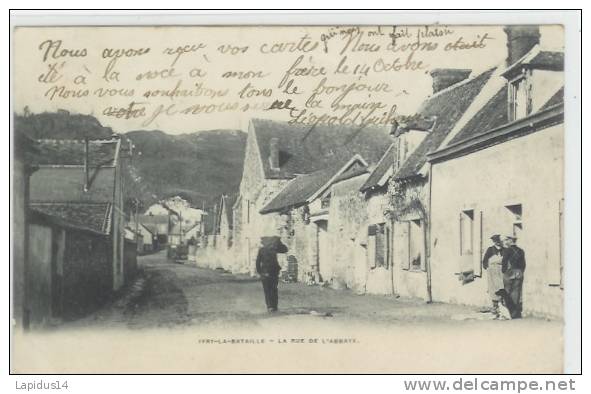 Nous avons reçu vos cartes qui nous ont fait plaisir Nous avons
été à la noce à mon frère le 14 Octobre
Nous vous souhaitons tous le bonjour
votre je nous
Léopold
IVRY-LA-BATAILLE - LA RUE DE L'ABBAYE.
Lapidus14